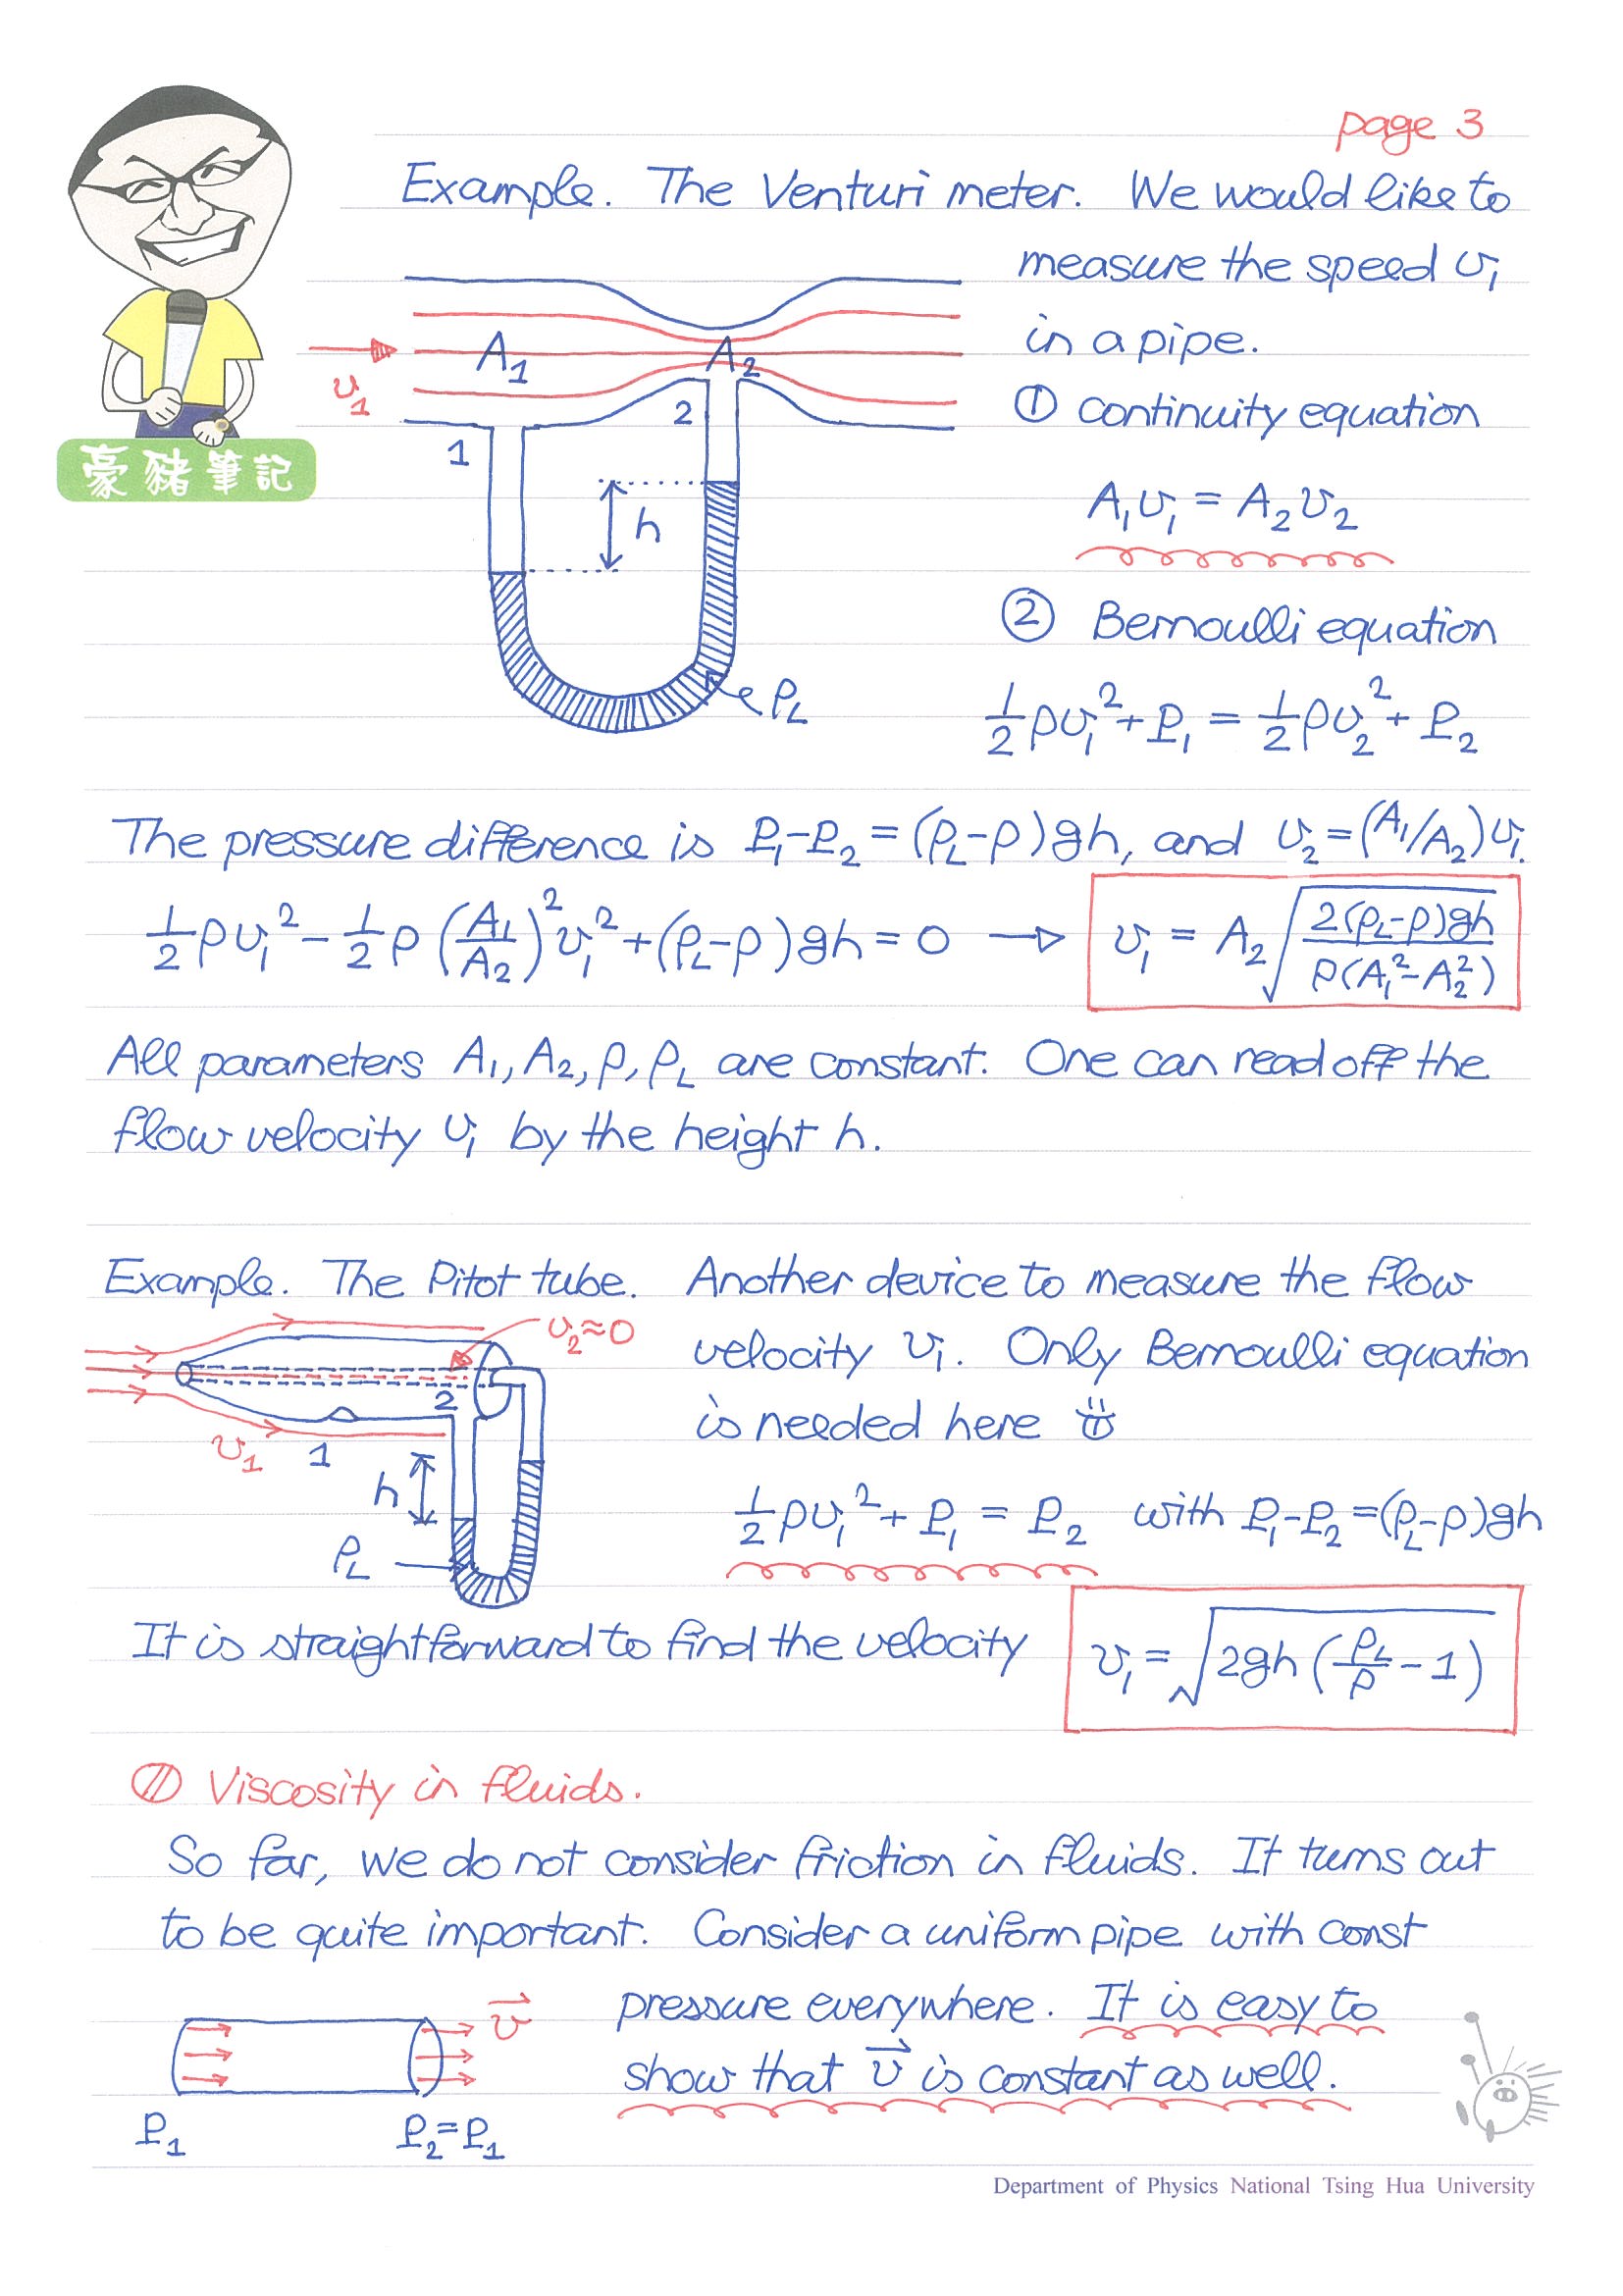 page 3
Example. The Venturi meter. We would like to
measure the speed v₁
in a pipe.
A₁ A₂
v₁
1 2
h
ρ_L
① continuity equation
A₁v₁ = A₂v₂
② Bernoulli equation
½ρv₁² + P₁ = ½ρv₂² + P₂
豪豬筆記
The pressure difference is P₁-P₂ = (ρ_L-ρ)gh, and v₂ = (A₁/A₂)v₁.
½ρv₁² - ½ρ(A₁/A₂)²v₁² + (ρ_L-ρ)gh = 0 → v₁ = A₂√(2(ρ_L-ρ)gh / ρ(A₁²-A₂²))
All parameters A₁, A₂, ρ, ρ_L are constant. One can read off the
flow velocity v₁ by the height h.
Example. The Pitot tube. Another device to measure the flow
velocity v₁. Only Bernoulli equation
is needed here
v₂≈0
2
v₁ 1
h
ρ_L
½ρv₁² + P₁ = P₂ with P₁-P₂ = (ρ_L-ρ)gh
It is straightforward to find the velocity v₁ = √(2gh(ρ_L/ρ - 1))
Viscosity in fluids.
So far, we do not consider friction in fluids. It turns out
to be quite important. Consider a uniform pipe with const
pressure everywhere. It is easy to
show that v⃗ is constant as well.
v⃗
P₁ P₂=P₁
Department of Physics National Tsing Hua University